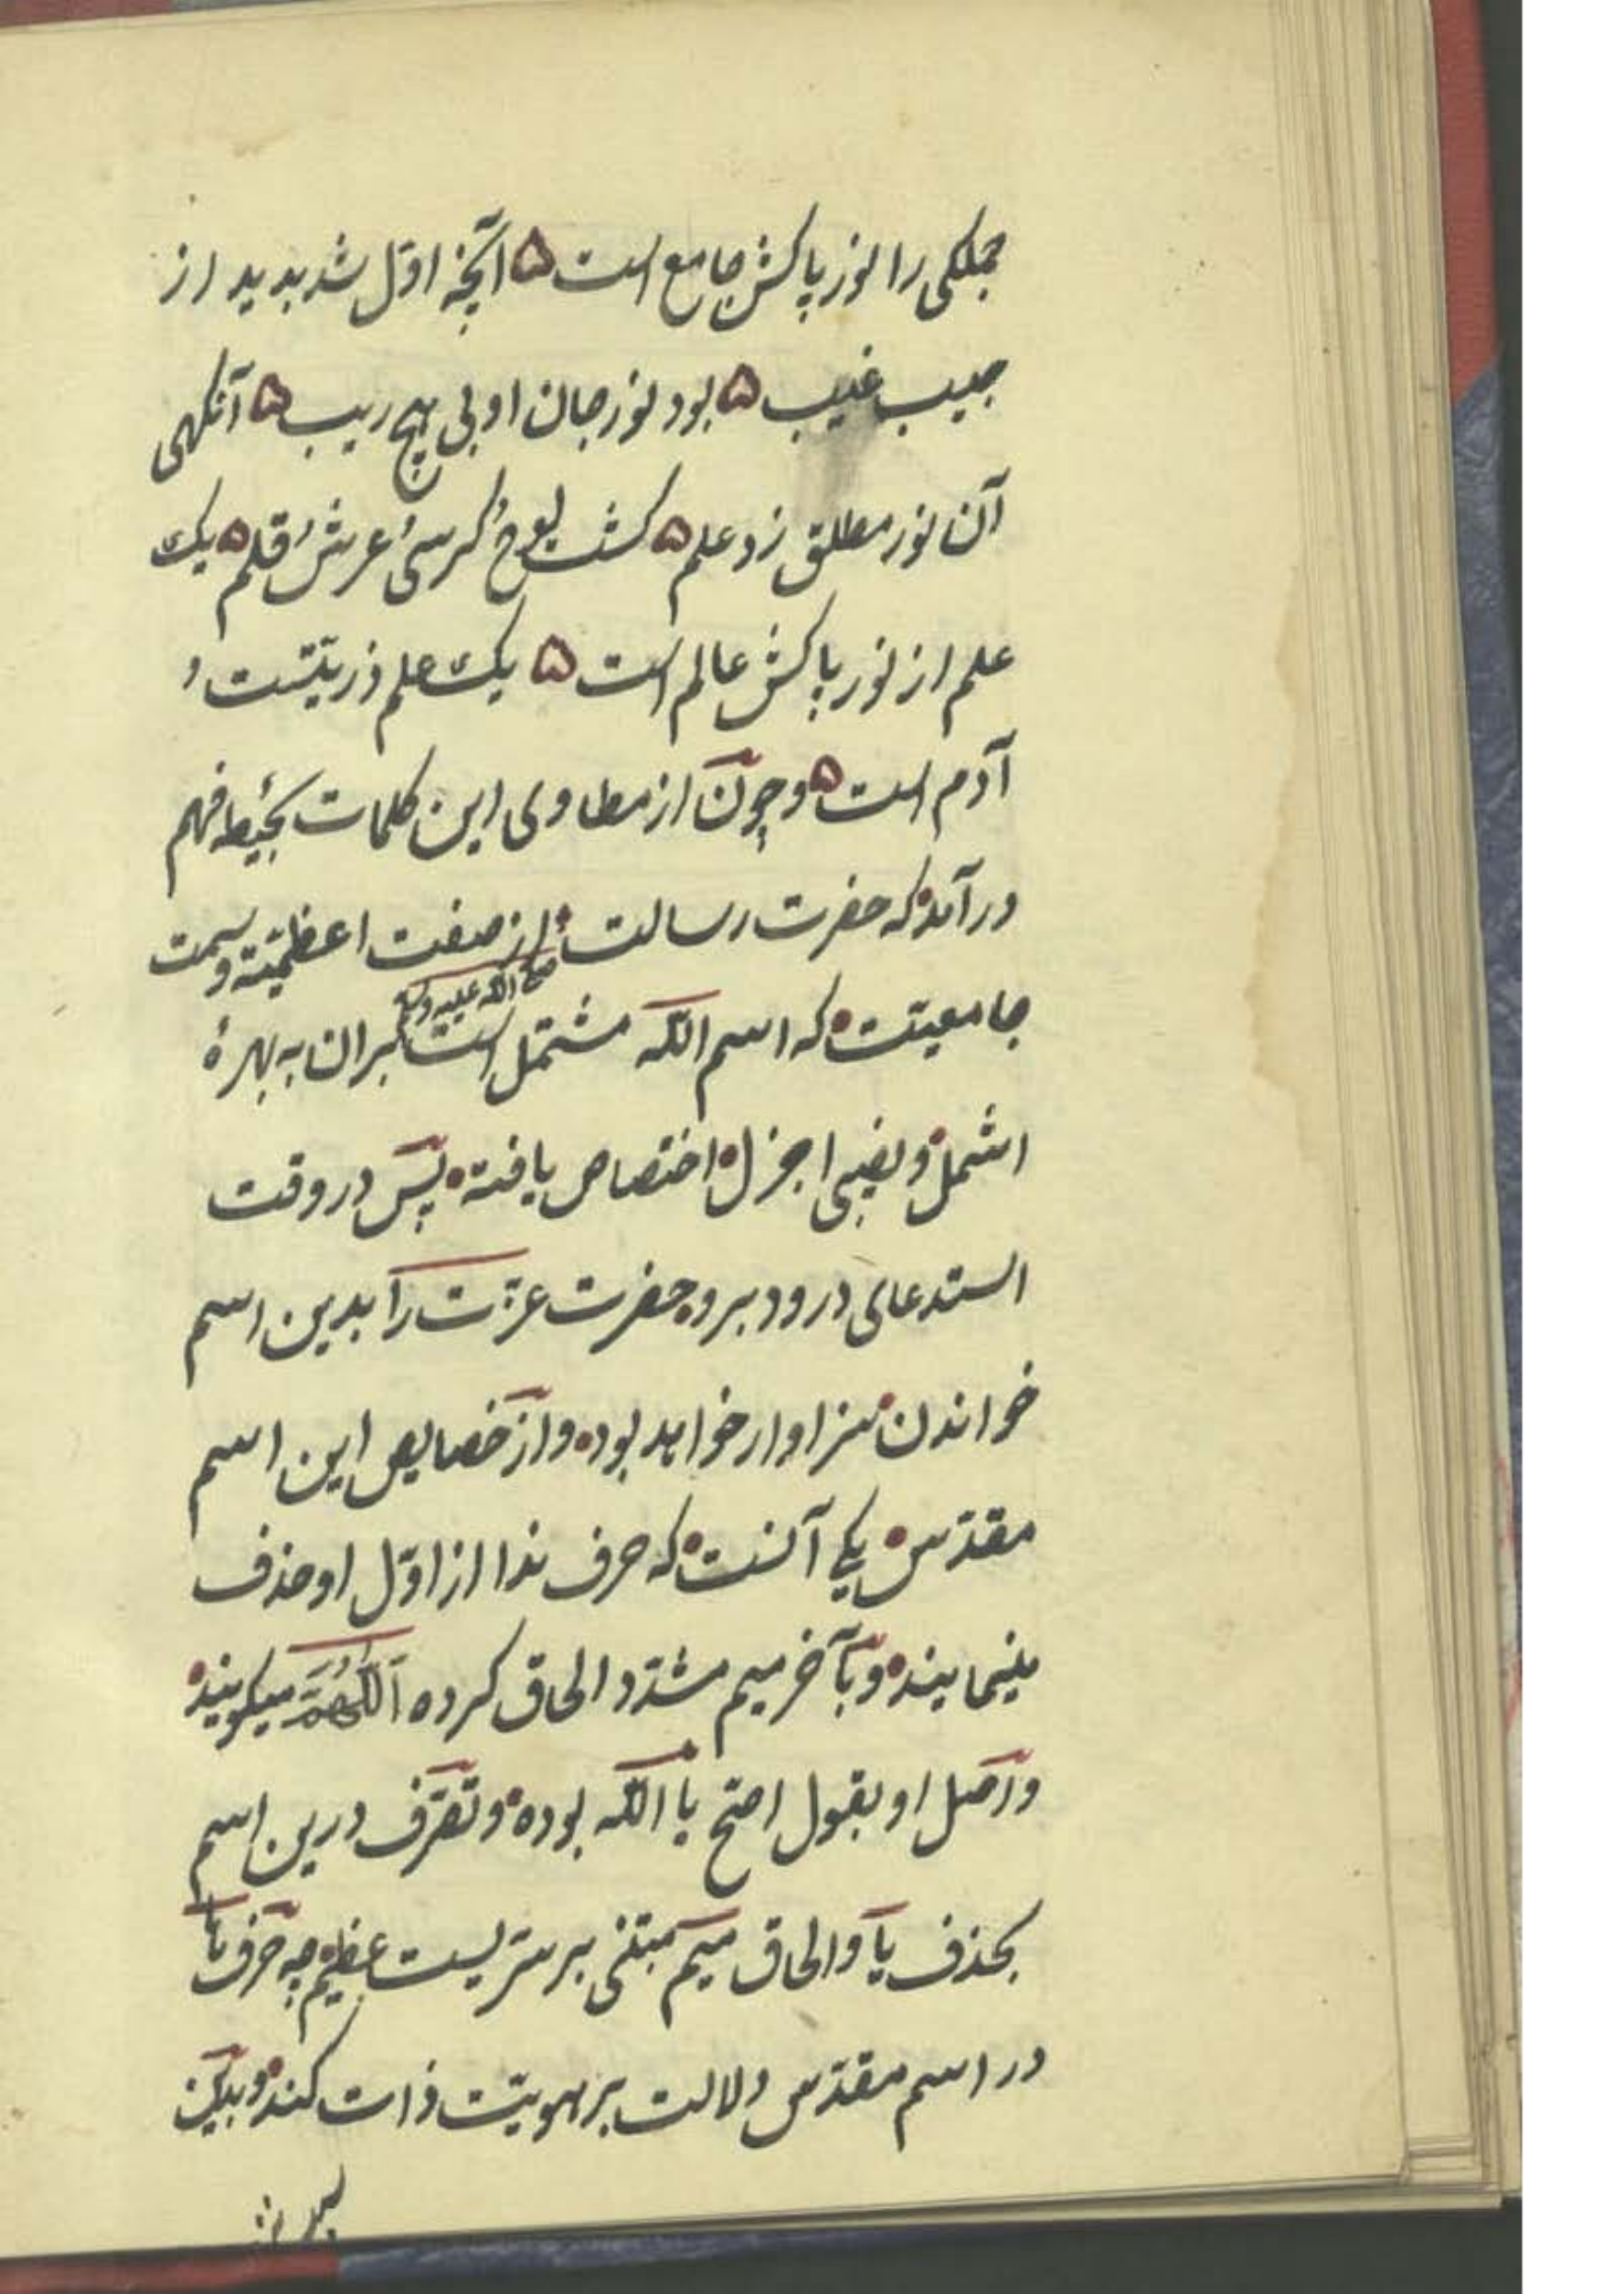 جملکی را نور پاکش جامع است ۵ آنچه اول شد بدید از
جیب غیب ۵ بود نور جان او بی هیچ ریب ۵ آنکهی
آن نور مطلق زد علم ۵ کشت لوح و کرسی و عرش و قلم ۵ یک
علم از نور پاکش عالم است ۵ یک علم ذریتست و
آدم است ۵ و چون از مطاوی این کلمات بحیطه فهم
درآمد که حضرت رسالت از صفت اعظمیته و سمت
صلی الله علیه وسلم
جامعیت که اسم الله مشتمل است بران به بهرهٔ
اشمل و نصیبی اجزل اختصاص یافته پس در وقت
استدعای درود برو حضرت عزّت را بدین اسم
خواندن سزاوار خواهد بود و از خصایص این اسم
مقدّس یکی آنست که حرف ندا از اوّل او حذف
مینمایند و بآخر میم مشدّد الحاق کرده اَللّٰهُمَّ میکویند
و اصل او بقول اصح یا الله بوده و تصرّف درین اسم
بحذف یا و الحاق میم مبتنی بر سرّیست عظیم چه حرف یا
در اسم مقدّس دلالت بر هویّت ذات کند و بدین